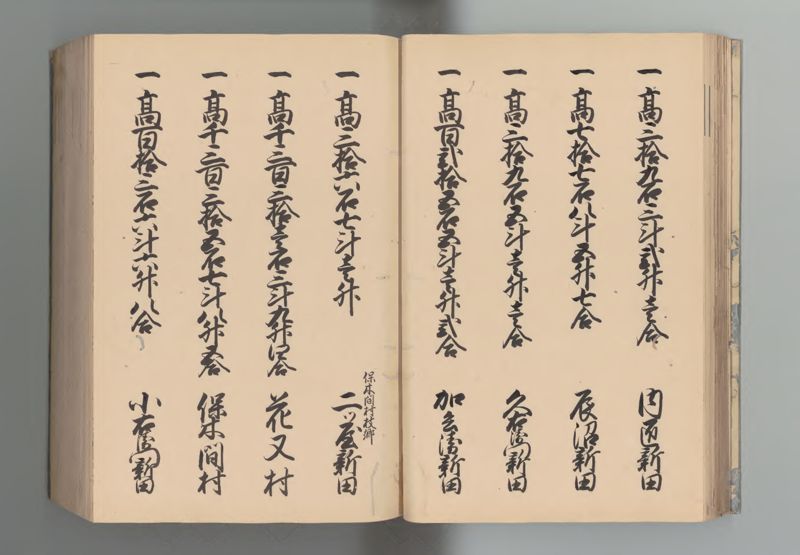 一 高三拾九石三斗弐升壱合 内匠新田
一 高七拾七石八斗五升七合 辰沼新田
一 高三拾九石五斗壱升壱合 久右衛門新田
一 高百弐拾五石五斗壱升弐合 加兵衛新田
保木間村枝郷
一 高三拾六石七斗壱升 二ツ屋新田
一 高千三百三拾壱石三斗九升四合 花又村
一 高千三百三拾五石七斗八升五合 保木間村
一 高百拾三石六斗六升八合 小右衛門新田